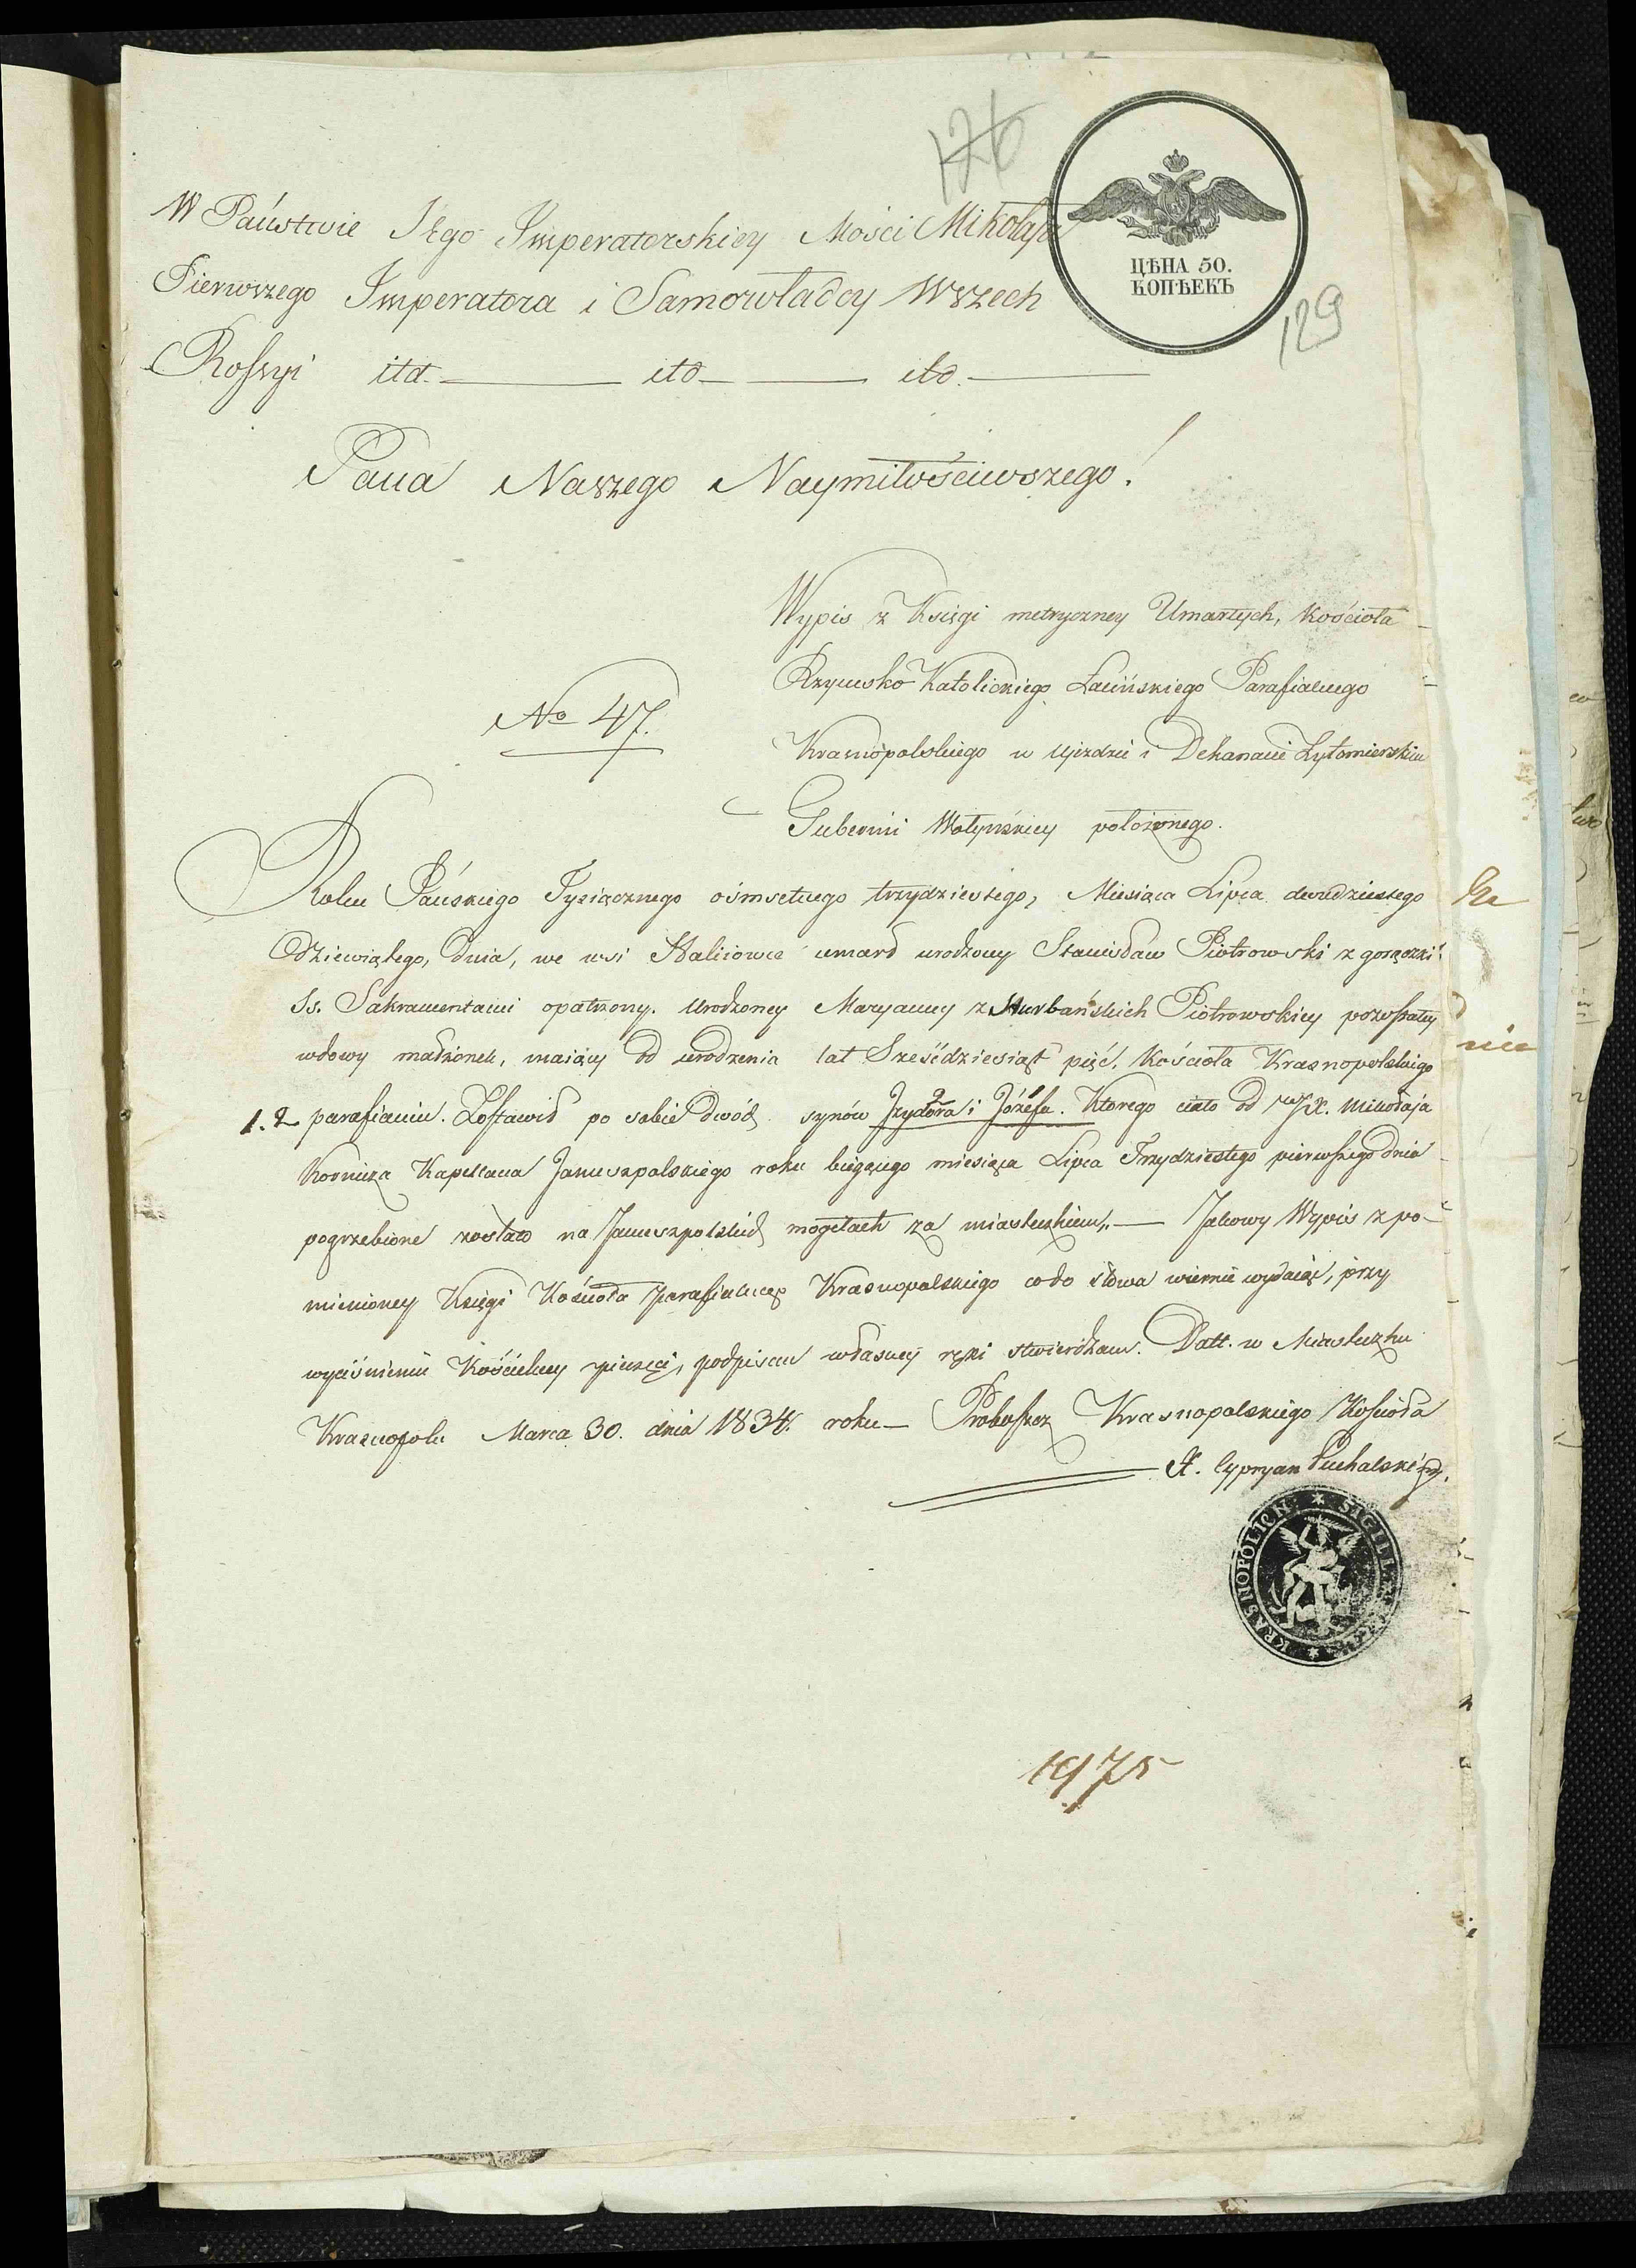 176
W Państwie Jego Imperatorskiey Mości Mikołaja
ЦѢНА 50.
КОПѢЕКЪ
Pierwszego Imperatora i Samowładcy Wszech
129
Rossyi itd. ito ito.
Pana Naszego Naymiłościwszego!
Wypis z Księgi metryczney Umarłych, Kościoła
Rzymsko Katolickiego Łacińskiego Parafialnego
No 47.
Krasnopolskiego w Ujezdzie i Dekanacie Żytomierskim
Gubernii Wołyńskiey położonego.
Roku Pańskiego Tysiącznego ośmsetnego trzydziestego, Miesiąca Lipca dwudziestego
dziewiątego, dnia, we wsi Halijowce umarł urodzony Stanisław Piotrowski z gorączki
Ss. Sakramentami opatrzony. Urodzoney Maryanny z Piotrowskiey pozostałey
wdowy małżonek, maiący od urodzenia lat Sześćdziesiąt pięć, Kościoła Krasnopolskiego
1. 2 parafianin. Zostawił po sobie dwóch synów Jzydora i Józefa. Ktorego ciało od X. Mikołaja
Kapellana Januszpolskiego roku bieżącego miesiąca Lipca Trzydziestego pierwszego dnia
pogrzebione zostało na Januszpolskich mogełach za miasteczkiem. — Jakowy Wypis z po-
mienioney Księgi Kościoła parafialnego Krasnopolskiego co do słowa wiernie wydaiąc, przy
wyciśnieniu Kościelney pieczęci, podpisem własney ręki stwierdzam. Datt. w Miasteczku
Krasnopolu Marca 30. dnia 1834. roku — Proboszcz Krasnopolskiego Kościoła
X. Cypryan Puchalski
KRASNOPOLICN * SIGILL
1975